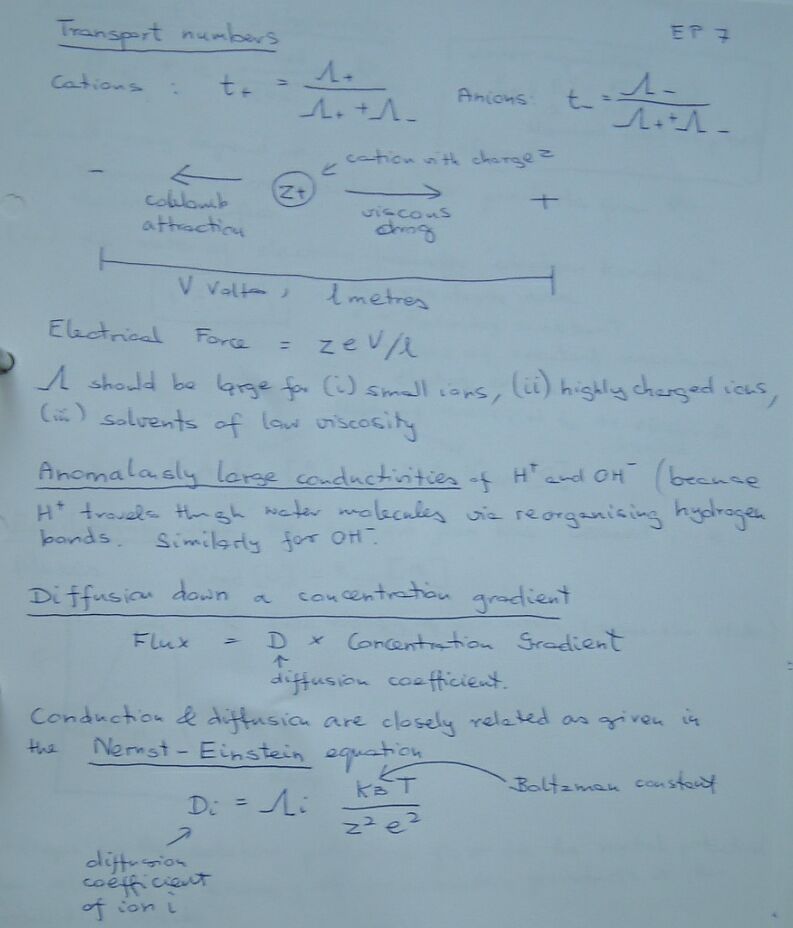 Transport numbers EP 7
Cations : t+ = Λ+ / Λ+ + Λ- Anions: t- = Λ- / Λ+ + Λ-
cation with charge z
- ← z+ → +
coulomb attraction viscous drag
V Volts, l metres
Electrical Force = z e V/l
Λ should be large for (i) small ions, (ii) highly charged ions,
(iii) solvents of low viscosity
Anomalously large conductivities of H⁺ and OH⁻ (because
H⁺ travels through water molecules via reorganising hydrogen
bonds. Similarly for OH⁻.
Diffusion down a concentration gradient
Flux = D × Concentration Gradient
↑
diffusion coefficient.
Conduction & diffusion are closely related as given in
the Nernst-Einstein equation
Di = Λi kB T / z² e² Boltzman constant
diffusion
coefficient
of ion i